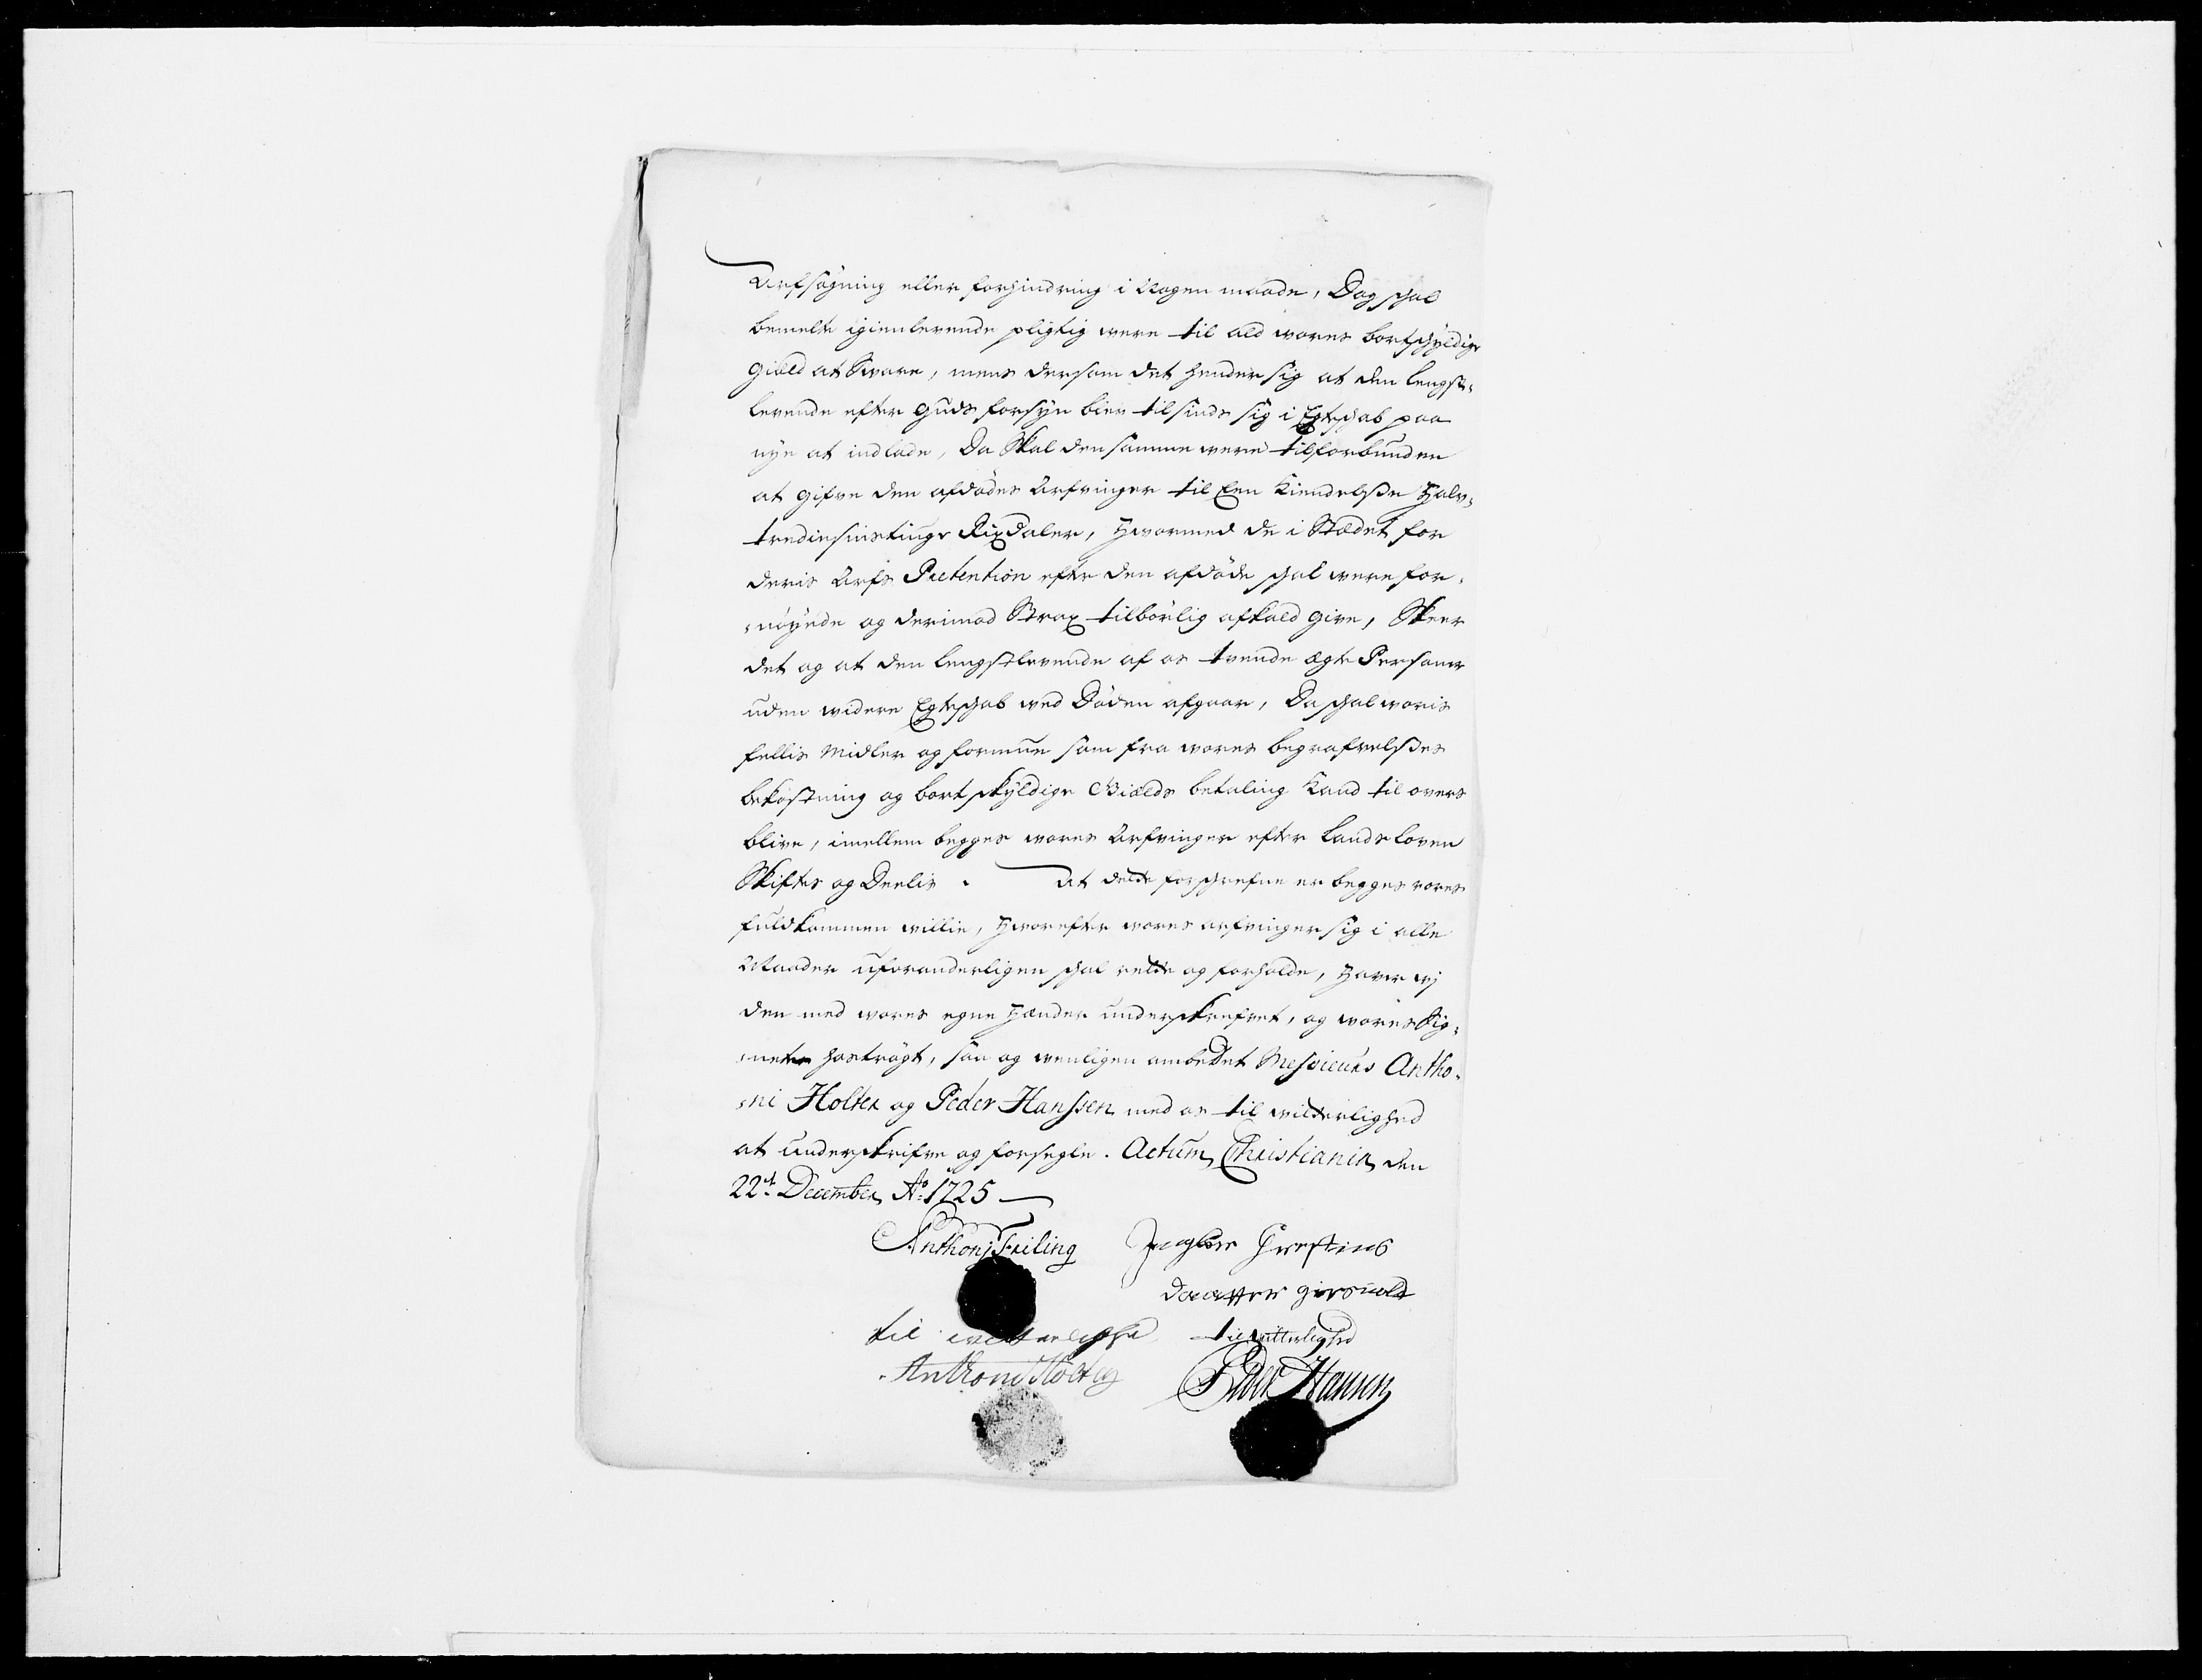 Arfsøgning eller forhindring i Nogen maade, Dog schal
bemelte igienlevende pligtig were til ald wores bortschyldige
Giæld at Sware, mens dersom det hender sig at den lengst-
levende efter Guds forsyn blev tilsinds sig i Egteschab paa
nye at indlade, Da Skal den samme were tilforbunden
at gifve den afdødes Arfvinger til Een Kiendelsße Halv-
trediesinstiuge Rixdaler, Hvormed de i Stædet for
deris Arfs Prætention efter den afdøde schal were for-
-nøyede og derimod Strax tilbørlig afkald give, Skeer
det og at den lengstlevende af os tvende ægte Personer
uden widere Egteschab ved Døden afgaar, Da schal woris
fellis Midler og formue som fra wores begrafvelßes
bekostning og bortskyldige Giælds betaling Kand til overs
blive, imellem begges wores Arfvinger efter Lands loven
Skiftes og Deelis. At dette forschrefne er begges vores
fuldkommen willie, Hvorefter wores arfvinger sig i alle
Maader uforanderligen schal rette og forholde, Haver wj
den med wores egne Hænder underskrefvet, og wores Sig-
-neter hostrøgt, saa og wenligen ombedet Messieurs Antho-
-ni Holter og Peder Hanssen med os til witterlighed
at underskrifve og forsegle. Actum Christiania den
22de December Ao 1725
Anthonj Friling Jngbor
daatter
til witterlighed til witterlighed
Anthoni Holter Peder Hansen